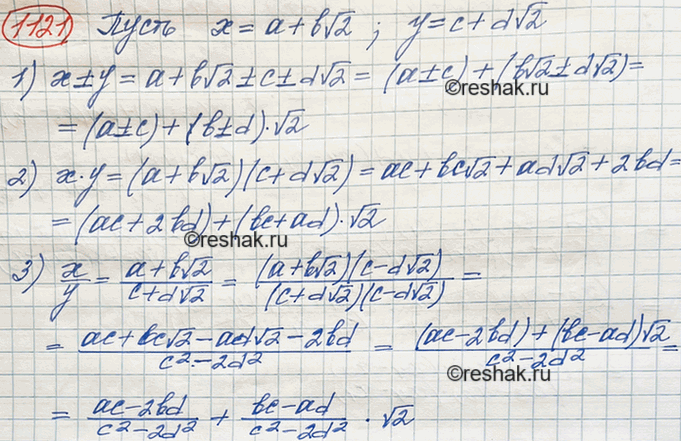 1121) Пусть x = a + b√2 ; y = c + d√2
1) x ± y = a + b√2 ± c ± d√2 = (a ± c) + (b√2 ± d√2) =
©reshak.ru
= (a ± c) + (b ± d) · √2
2) x · y = (a + b√2)(c + d√2) = ac + bc√2 + ad√2 + 2bd =
= (ac + 2bd) + (bc + ad) · √2
©reshak.ru
3) x/y = (a + b√2)/(c + d√2) = ((a + b√2)(c - d√2))/((c + d√2)(c - d√2)) =
= (ac + bc√2 - ad√2 - 2bd)/(c² - 2d²) = ((ac - 2bd) + (bc - ad)√2)/(c² - 2d²) =
©reshak.ru
= (ac - 2bd)/(c² - 2d²) + (bc - ad)/(c² - 2d²) · √2